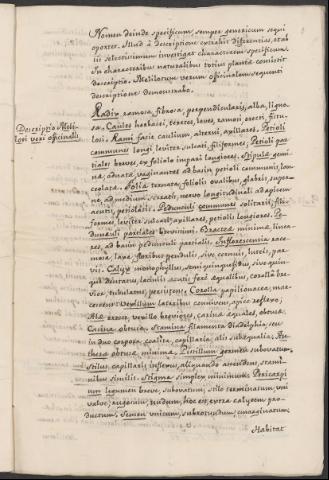 Nomen deinde specificum semper genericum sequi
oportet. Illud à descriptione extrahit differentias, et ab
illis selectissimum investigat characterem specificum.
In characteribus naturalibus totius plantæ consistit
descriptio. Meliloti verum officinalem sequenti
descriptione demonstrabo.
Descriptio Meli-
loti veri officinalis
Radix ramosa, fibrosa, perpendicularis, alba, ligno-
sa. Caules herbacei, teretes, læves, ramosi erecti, fistu-
losi. Rami facie caulium, alterni, axillares. Petioli
communes longi leviter sulcati, filiformes; Petioli par-
tiales breves, ex foliolo impari longiores. Stipulæ gemi-
næ, adnatæ, vaginantes ad basin petioli communis, lan-
ceolatæ. Folia ternata, foliolis ovalibus, glabris, super-
ne, ad medium serratis, nervo longitudinali ad apicem
acutis, petiolatis. Pedunculi communes solitarii, fili-
formes, leviter sulcati, axillares, petiolis longiores. Pe-
dunculi partiales brevissimi. Bracteæ minimæ, linea-
res, ad basin pedunculi partialis. Inflorescentia race-
mosa, laxa, floribus penduli sive cernui, lutei, par-
vi. Calyx monophyllus, semiquinquefidus, sive quin-
que dentatus, laciniis acutis fere æqualibus, corollâ bre-
vior, tubulatus, persistens. Corolla papilionacea, mar-
cescens; Vexillum lateribus connivens, apice reflexo;
Alæ erectæ, vexillo breviores, carinæ æquales, obtusæ.
Carina obtusa. Stamina filamenta diadelphia, seu
in duo corpora, coalita, capillaria, aliis subæqualia; An-
theræ obtusæ, minimæ. Pistillum germen subovatum,
Stilus capillaris, inflexus, aliquando ascendens, stami-
nibus similis. Stigma simplex minimum. Pericarpi-
um legumen breve, subovatum, stilo terminatum, uni
valve, rugosum, nudum, hoc est, extra calycem pro-
ductum. Semen unicum, subrotundum, emarginatum.
Habitat